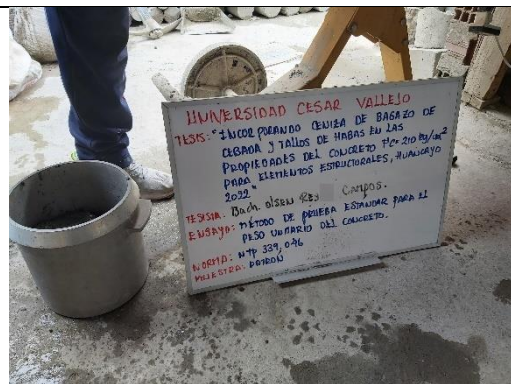 UNIVERSIDAD CESAR VALLEJO
TESIS: "INCORPORANDO CENIZA DE BAGAZO DE
CEBADA Y TALLOS DE HABAS EN LAS
PROPIEDADES DEL CONCRETO F'C=210 kg/cm2
PARA ELEMENTOS ESTRUCTURALES, HUANCAYO
2022"
TESISTA: Bach. OLSEN CAMPOS.
ENSAYO: MÉTODO DE PRUEBA ESTANDAR PARA EL
PESO UNITARIO DEL CONCRETO.
NORMA: NTP 339.046
MUESTRA: PATRÓN